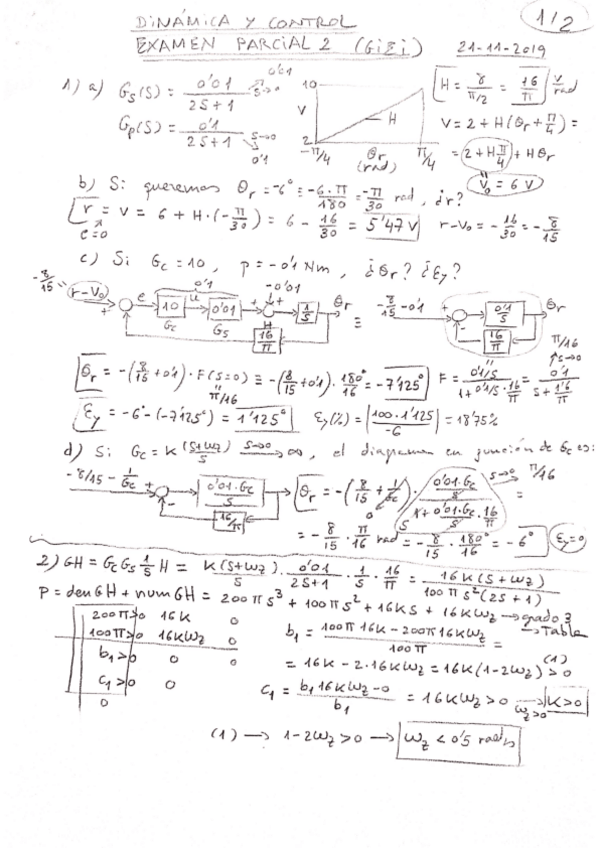 DINÁMICA Y CONTROL 1/2
EXAMEN PARCIAL 2 (GIEI) 21-11-2019
1) a) Gs(S) = 0'01 / (2S+1) S→0 0'01
Gp(S) = 0'1 / (2S+1) S→0 0'1
10 V 2 -π/4 θr (rad) π/4 H
H = 8 / (π/2) = 16/π V/rad
V = 2 + H(θr + π/4) =
= (2 + H π/4) + H θr
V0 = 6 V
b) Si queremos θr = -6° = -6·π/180 = -π/30 rad, ¿r?
r = V = 6 + H·(-π/30) = 6 - 16/30 = 5'47 V r-V0 = -16/30 = -8/15
e=0
c) Si Gc = 10, p = -0'1 Nm, ¿θr? ¿Ey?
-8/15 = r-V0 + - e 10 Gc u 0'1 0'01 Gs + + -0'01 1/S θr H 16/π ≡ -8/15 -0'1 + - 0'1/S 16/π θr
θr = -(8/15 + 0'1)·F(S=0) = -(8/15 + 0'1)·180°/16 = -7'125° F = (0'1/S) / (1 + 0'1/S·16/π) = 0'1 / (S + 1'6/π) S→0 π/16
π/16
Ey = -6° - (-7'125°) = 1'125° Ey(%) = |100·1'125 / -6| = 18'75%
d) Si Gc = K (S+ωz)/S S→0 ∞, el diagrama en función de Gc es:
-8/15 - 1/Gc + - 0'01·Gc/S 16/π θr = -(8/15 + 1/Gc)·(0'01·Gc/S) / (1 + 0'01·Gc/S·16/π) S→0 π/16 =
0
= -8/15·π/16 rad = -8/15·180°/16 = -6° Ey=0
2) GH = Gc Gs 1/S H = K(S+ωz)/S · 0'01/(2S+1) · 1/S · 16/π = 16K(S+ωz) / (100π S²(2S+1))
P = den GH + num GH = 200πS³ + 100πS² + 16KS + 16Kωz → grado 3
→ Tabla
200π>0 16K 0
100π>0 16Kωz 0
b1>0 0 0
c1>0 0
0
b1 = (100π16K - 200π16Kωz) / 100π =
= 16K - 2·16Kωz = 16K(1-2ωz) > 0 (1)
c1 = (b1 16Kωz - 0) / b1 = 16Kωz > 0 → ωz>0 K>0
(1) → 1-2ωz > 0 → ωz < 0'5 rad/s